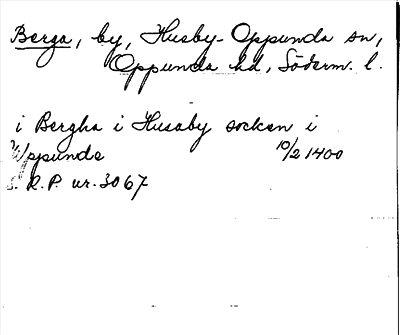 Berga, by, Husby-Oppunda sn,
Oppunda hd, Söderm. l.
i Bergha i Husaby socken i
Oppunda 10/2 1400
S. R.P. nr. 3067